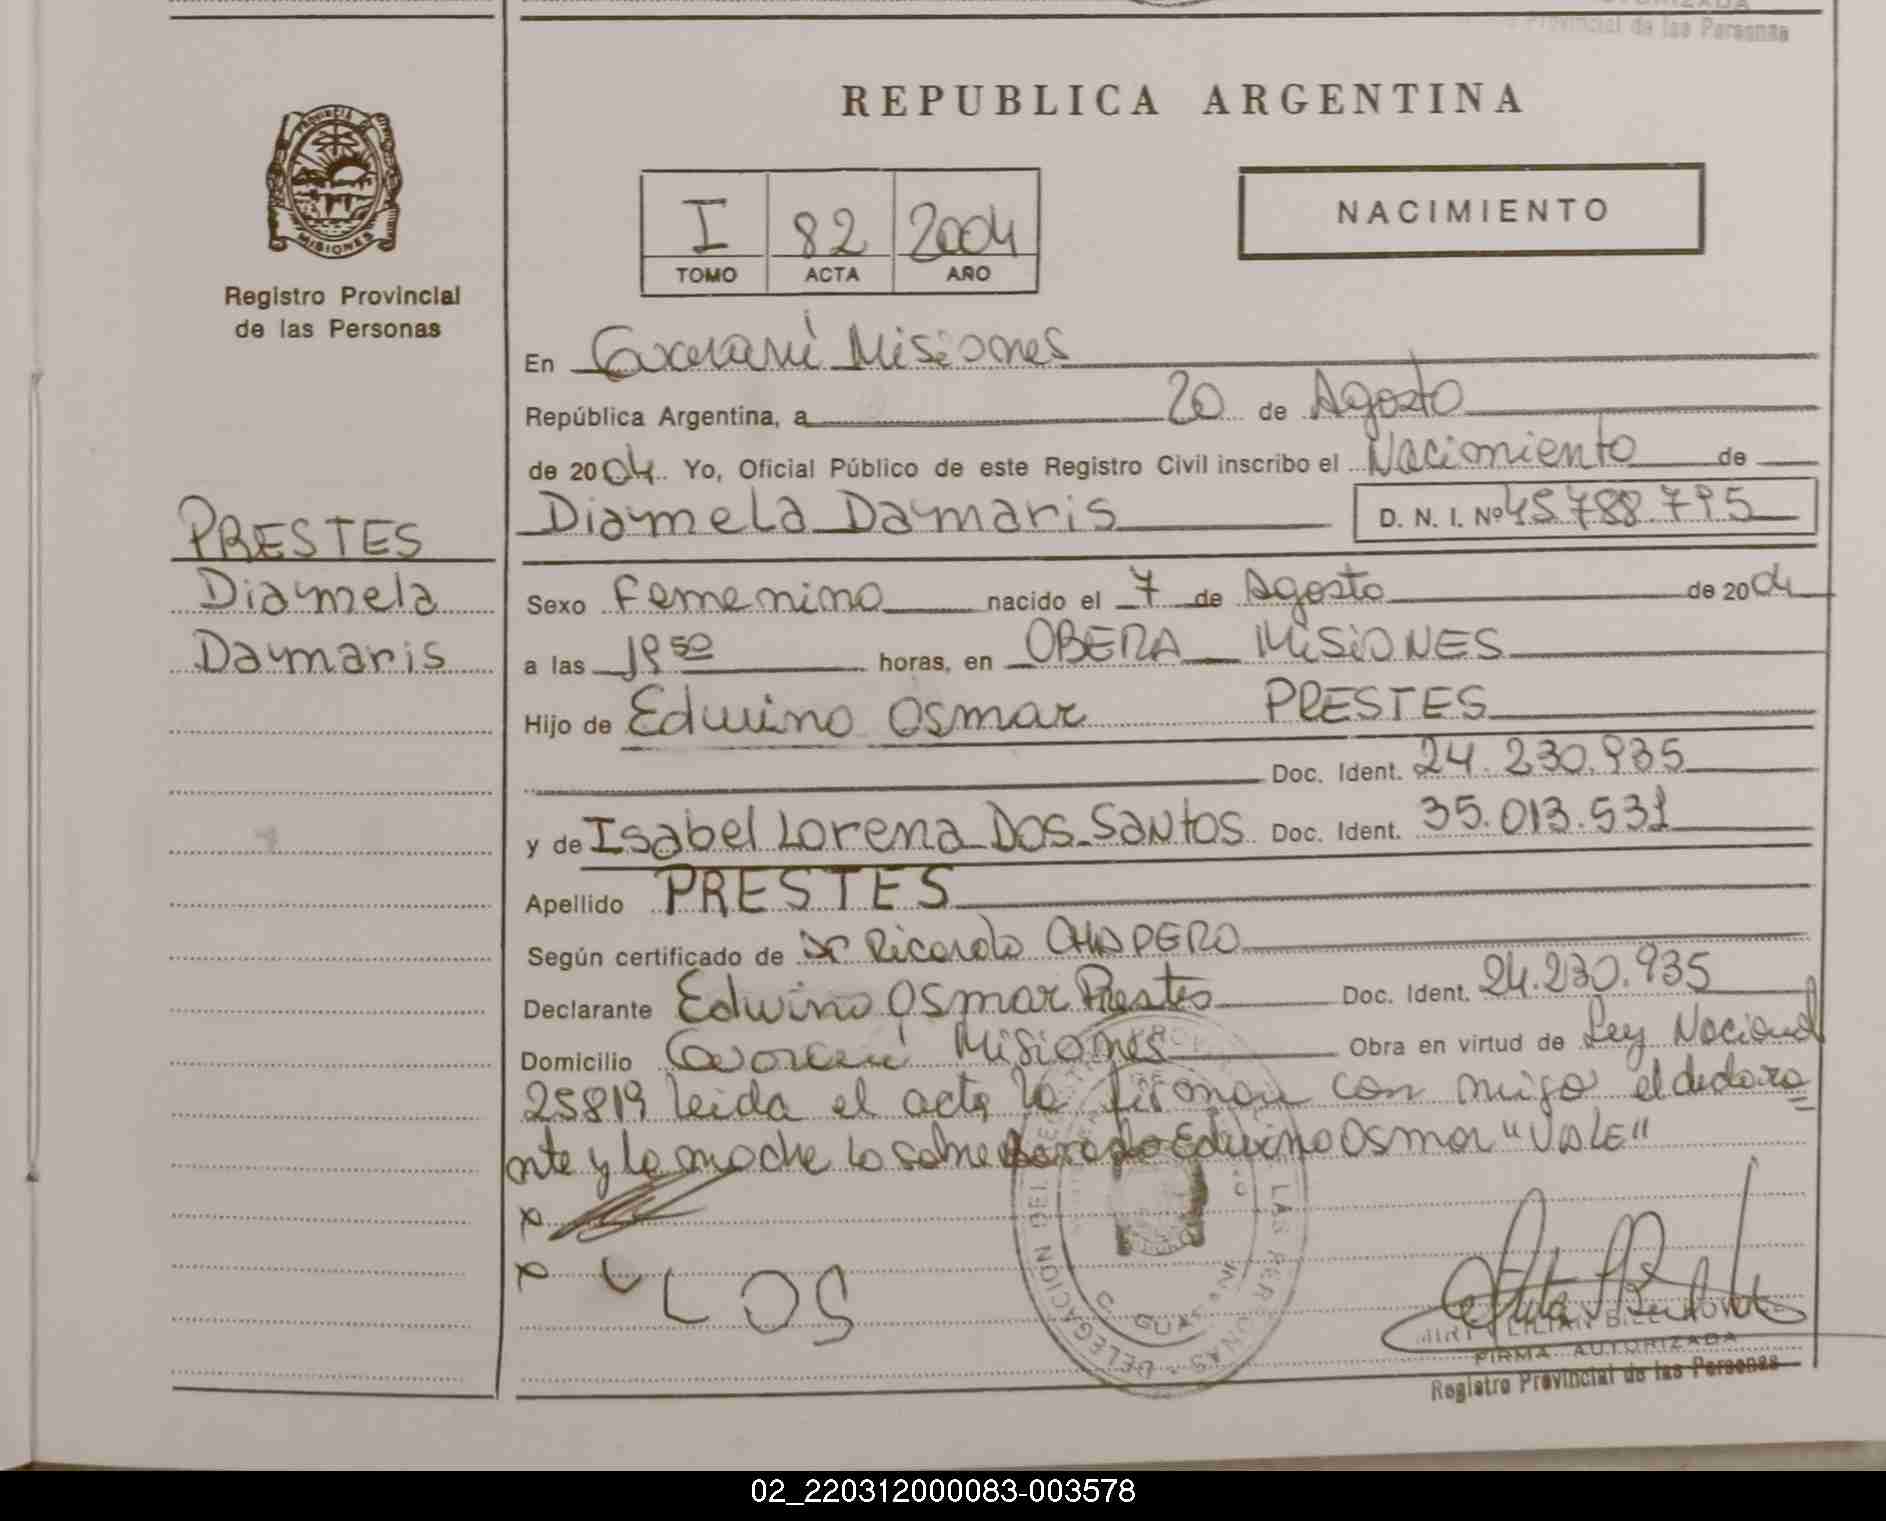 AUTORIZADA
Provincial de las Personas
REPUBLICA ARGENTINA
PROVINCIA DE
MISIONES
Registro Provincial
de las Personas
I 82 2004
TOMO ACTA AÑO
NACIMIENTO
En Guarani Misiones
República Argentina, a 20 de Agosto
de 2004. Yo, Oficial Público de este Registro Civil inscribo el Nacimiento de
Diamela Damaris D. N. I. Nº 45.788.795
PRESTES
Diamela
Damaris
Sexo Femenino nacido el 7 de Agosto de 2004
a las 19 50 horas, en OBERA MISIONES
Hijo de Edwino Osmar PRESTES
Doc. Ident. 24.230.935
y de Isabel Lorena Dos Santos Doc. Ident. 35.013.531
Apellido PRESTES
Según certificado de Dr Ricardo CHAPERO
Declarante Edwino Osmar Prestes Doc. Ident. 24.230.935
Domicilio Guarani Misiones Obra en virtud de Ley Nacional
25819 leida el acta la firman con migo el declara
nte y la madre lo sobre Edwino Osmar "VALE"
x
x LOS
DELEGACION
LAS PERSONAS
FIRMA AUTORIZADA
Registro Provincial de las Personas
02_220312000083-003578